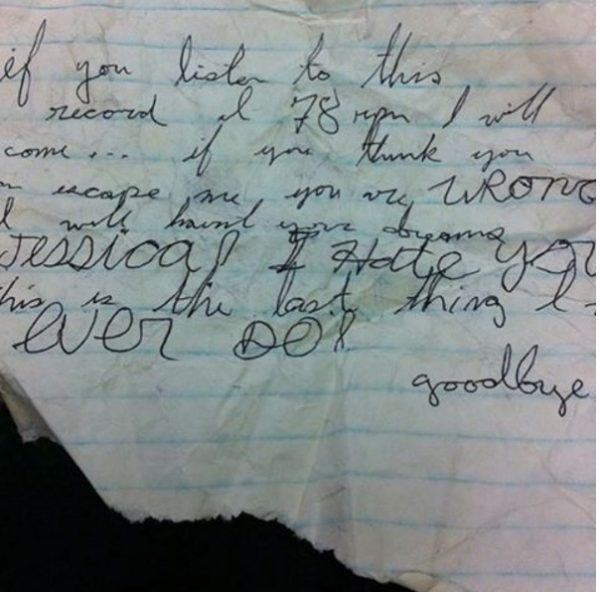 if you listen to this
record at 78 rpm I will
come... if you think you
escape me you are WRONG
I will haunt your dreams
Jessica! I Hate You
this is the last thing I
EVER DO!
goodbye